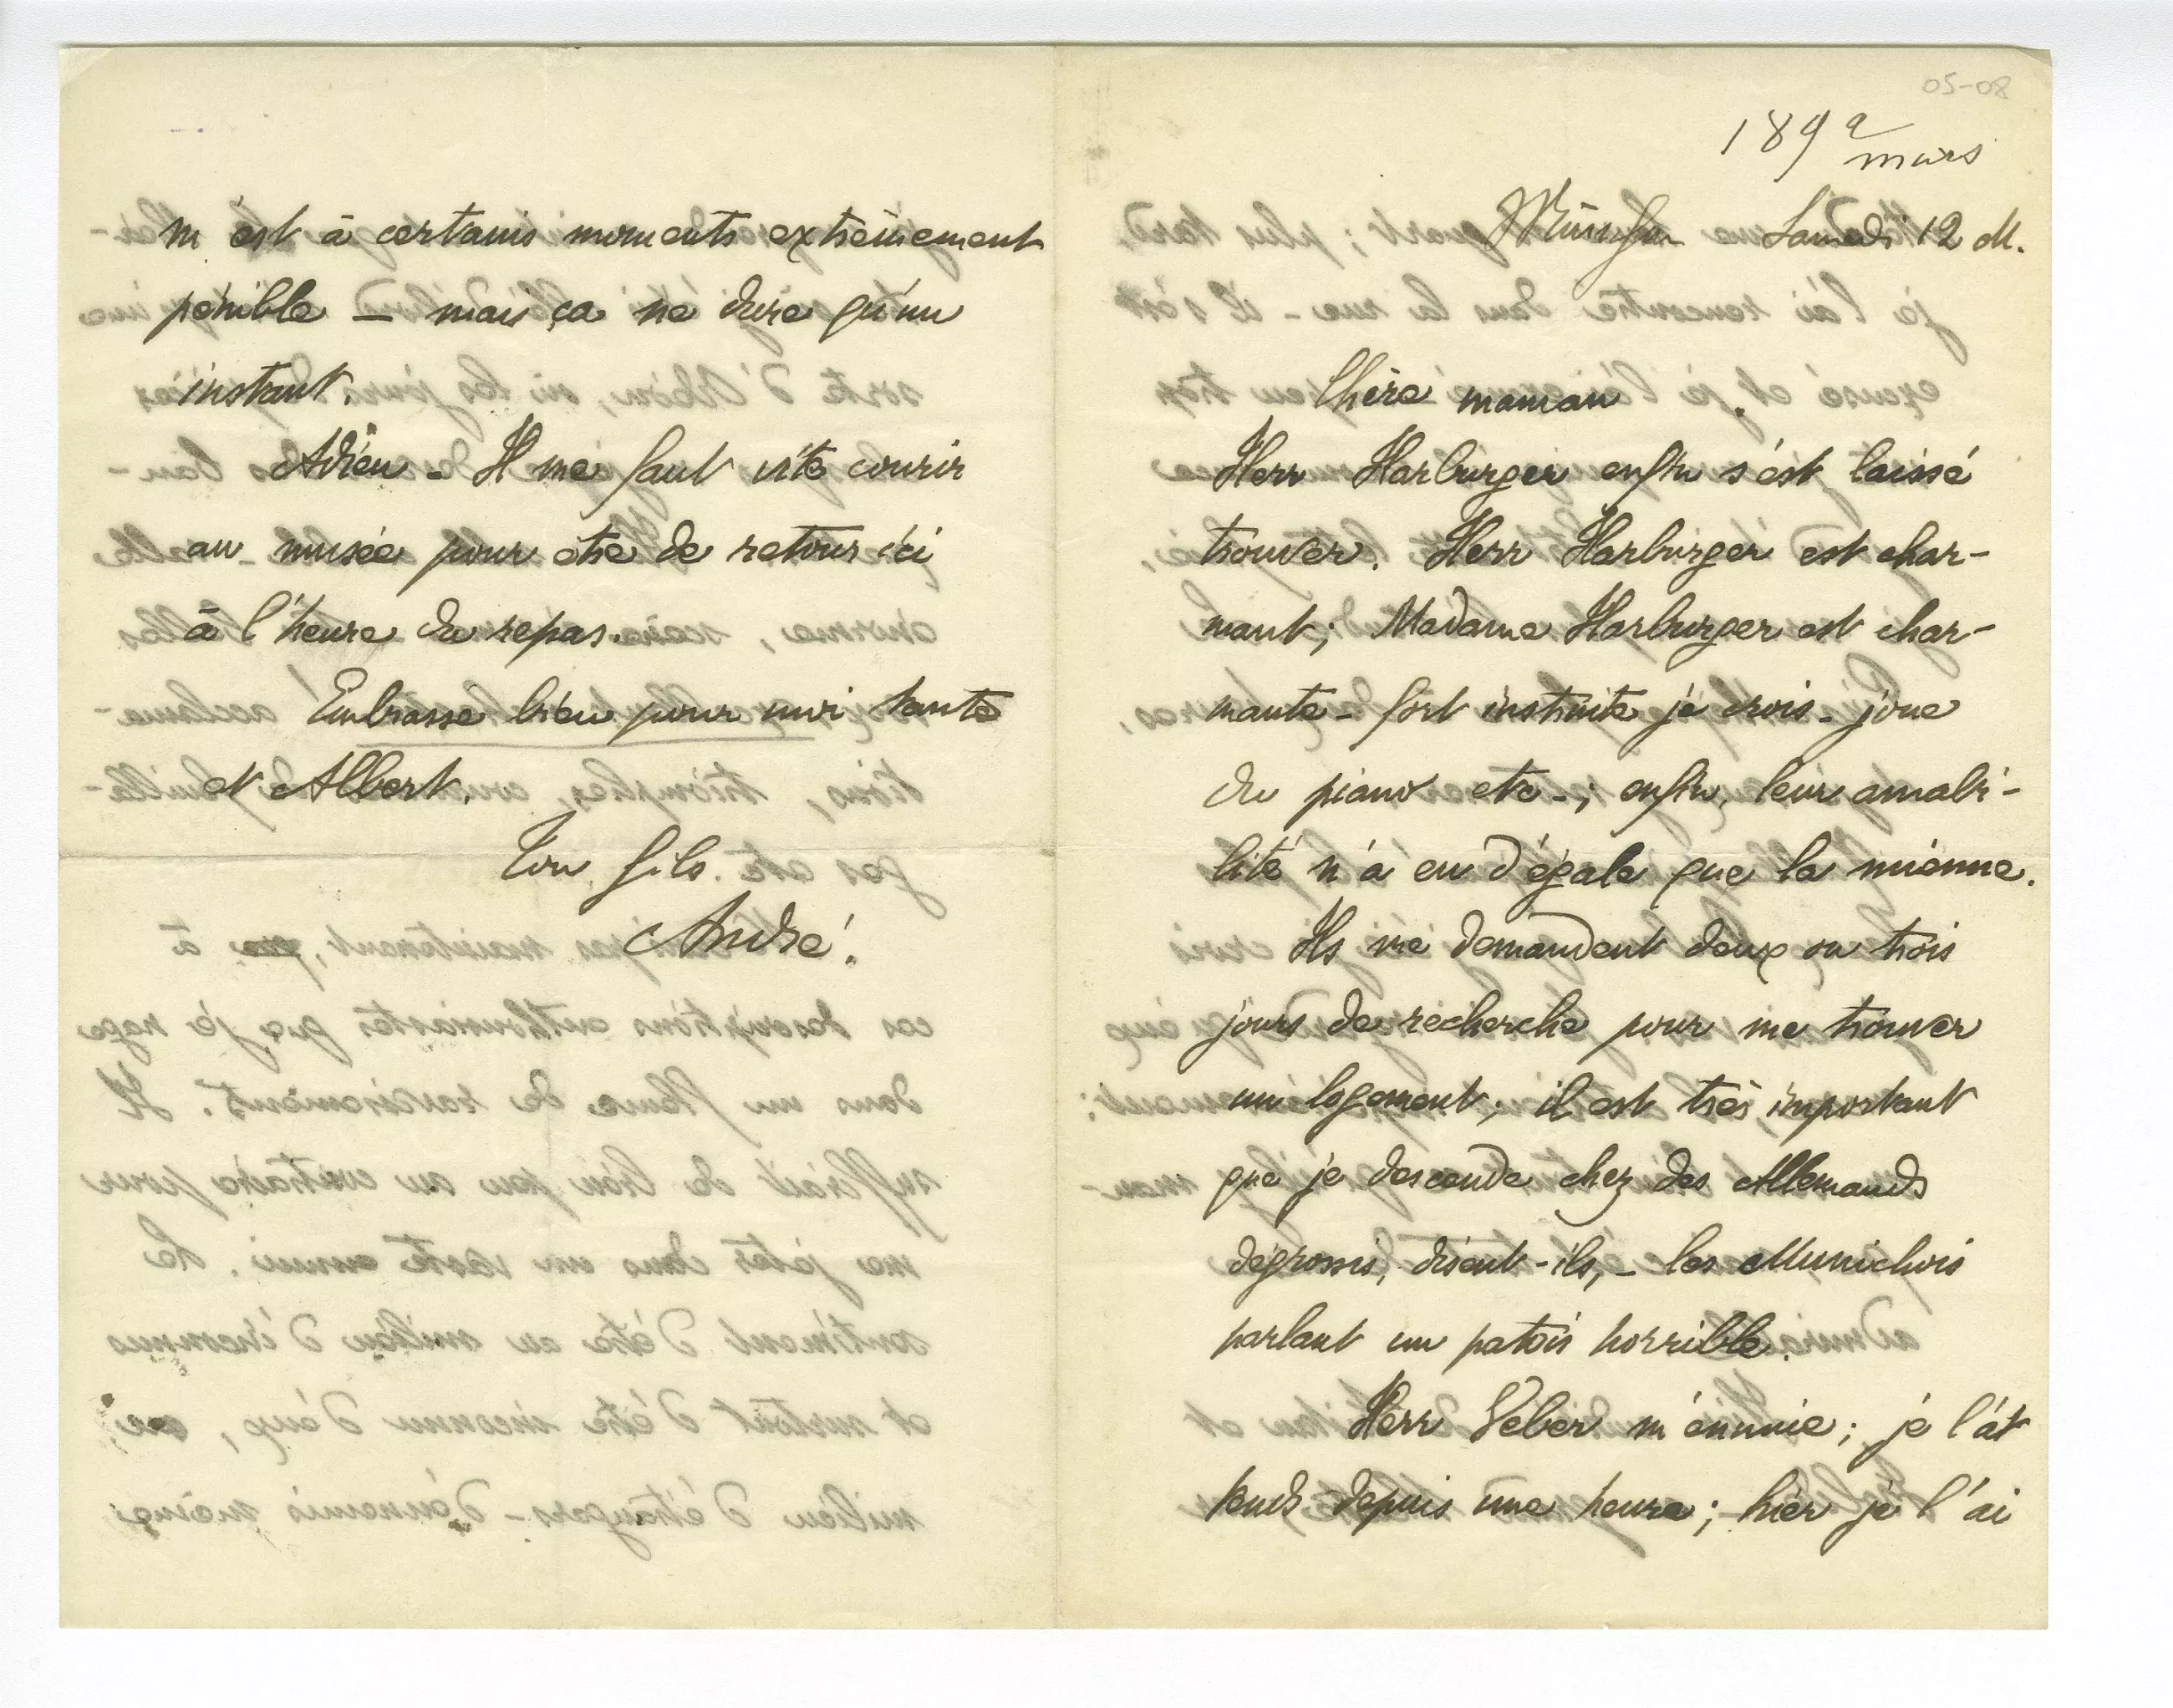 05-08
1892
mars
München Samedi 12 M.
Chère maman.
Herr Harburger enfin s'est laissé
trouver. Herr Harburger est char-
mant; Madame Harburger est char-
mante - fort instruite je crois - joue
du piano etc -; enfin, leur amabi-
lité n'a eu d'égale que la mienne.
Ils me demandent deux ou trois
jours de recherche pour me trouver
un logement; il est très important
que je descende chez des Allemands
dégrossis, disent-ils, - les Munichois
parlant un patois horrible.
Herr Veber m'ennuie; je l'at
tends depuis une heure; hier je l'ai
m'est à certains moments extrêmement
pénible — mais ça ne dure qu'un
instant.
Adieu - Il me faut vite courir
au musée pour être de retour ici
à l'heure du repas.
Embrasse bien pour moi tante
et Albert.
Ton fils.
André.